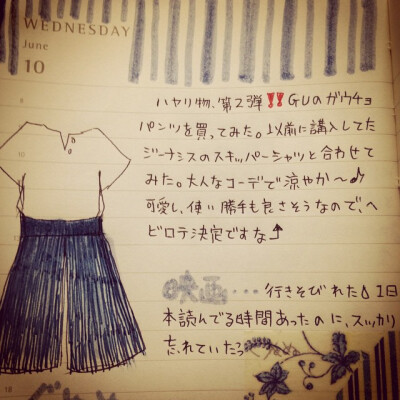 WEDNESDAY
June
10
8
ハヤリ物、第2弾‼GUのガウチョ
パンツを買ってみた。以前に講入してた
10
ジーナシスのスキッパーシャツと合わせて
みた。大人なコーデで涼やか〜♪
可愛し、使い勝手も良さそうなので、ヘ
ビロテ決定ですな⤴
映画・・・行きそびれた💧1日
本読んでる時間あったのに、スッカリ
忘れていたっ
18